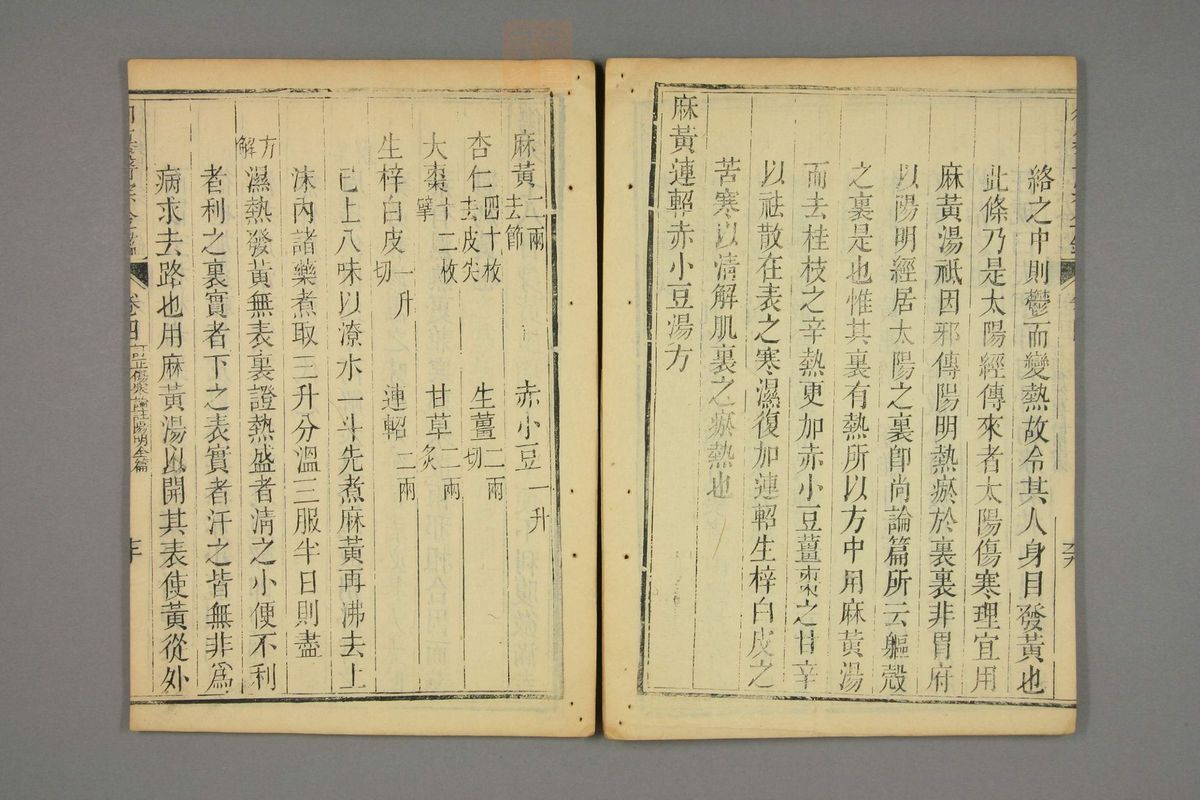 絡之中則鬱而變熱故令其人身目發黃也
此條乃是太陽經傳來者太陽傷寒理宜用
麻黃湯祇因邪傳陽明熱瘀於裏裏非胃府
以陽明經居太陽之裏卽尚論篇所云軀殼
之裏是也惟其裏有熱所以方中用麻黃湯
而去桂枝之辛熱更加赤小豆薑棗之甘辛
以祛散在表之寒濕復加連軺生梓白皮之
苦寒以清解肌裏之瘀熱也
麻黃連軺赤小豆湯方
麻黃二兩去節 赤小豆一升
杏仁四十枚去皮尖 生薑二兩切
大棗十二枚擘 甘草二兩炙
生梓白皮一升切 連軺二兩
已上八味以潦水一斗先煮麻黃再沸去上
沫內諸藥煮取三升分溫三服半日則盡
方解
濕熱發黃無表裏證熱盛者清之小便不利
者利之裏實者下之表實者汗之皆無非爲
病求去路也用麻黃湯以開其表使黃從外
卷四 訂正傷寒論註陽明全篇